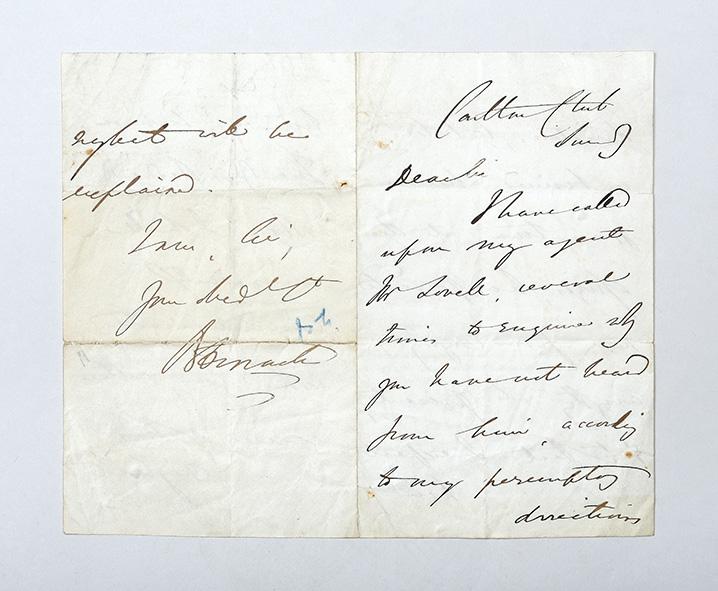 Carlton Club
Sunday
Dear Sir
I have called
upon my agent
Mr Lovell, several
times to enquire why
you have not heard
from him, according
to my peremptory
directions
neglect will be
explained.
I am, Sir,
Your obed